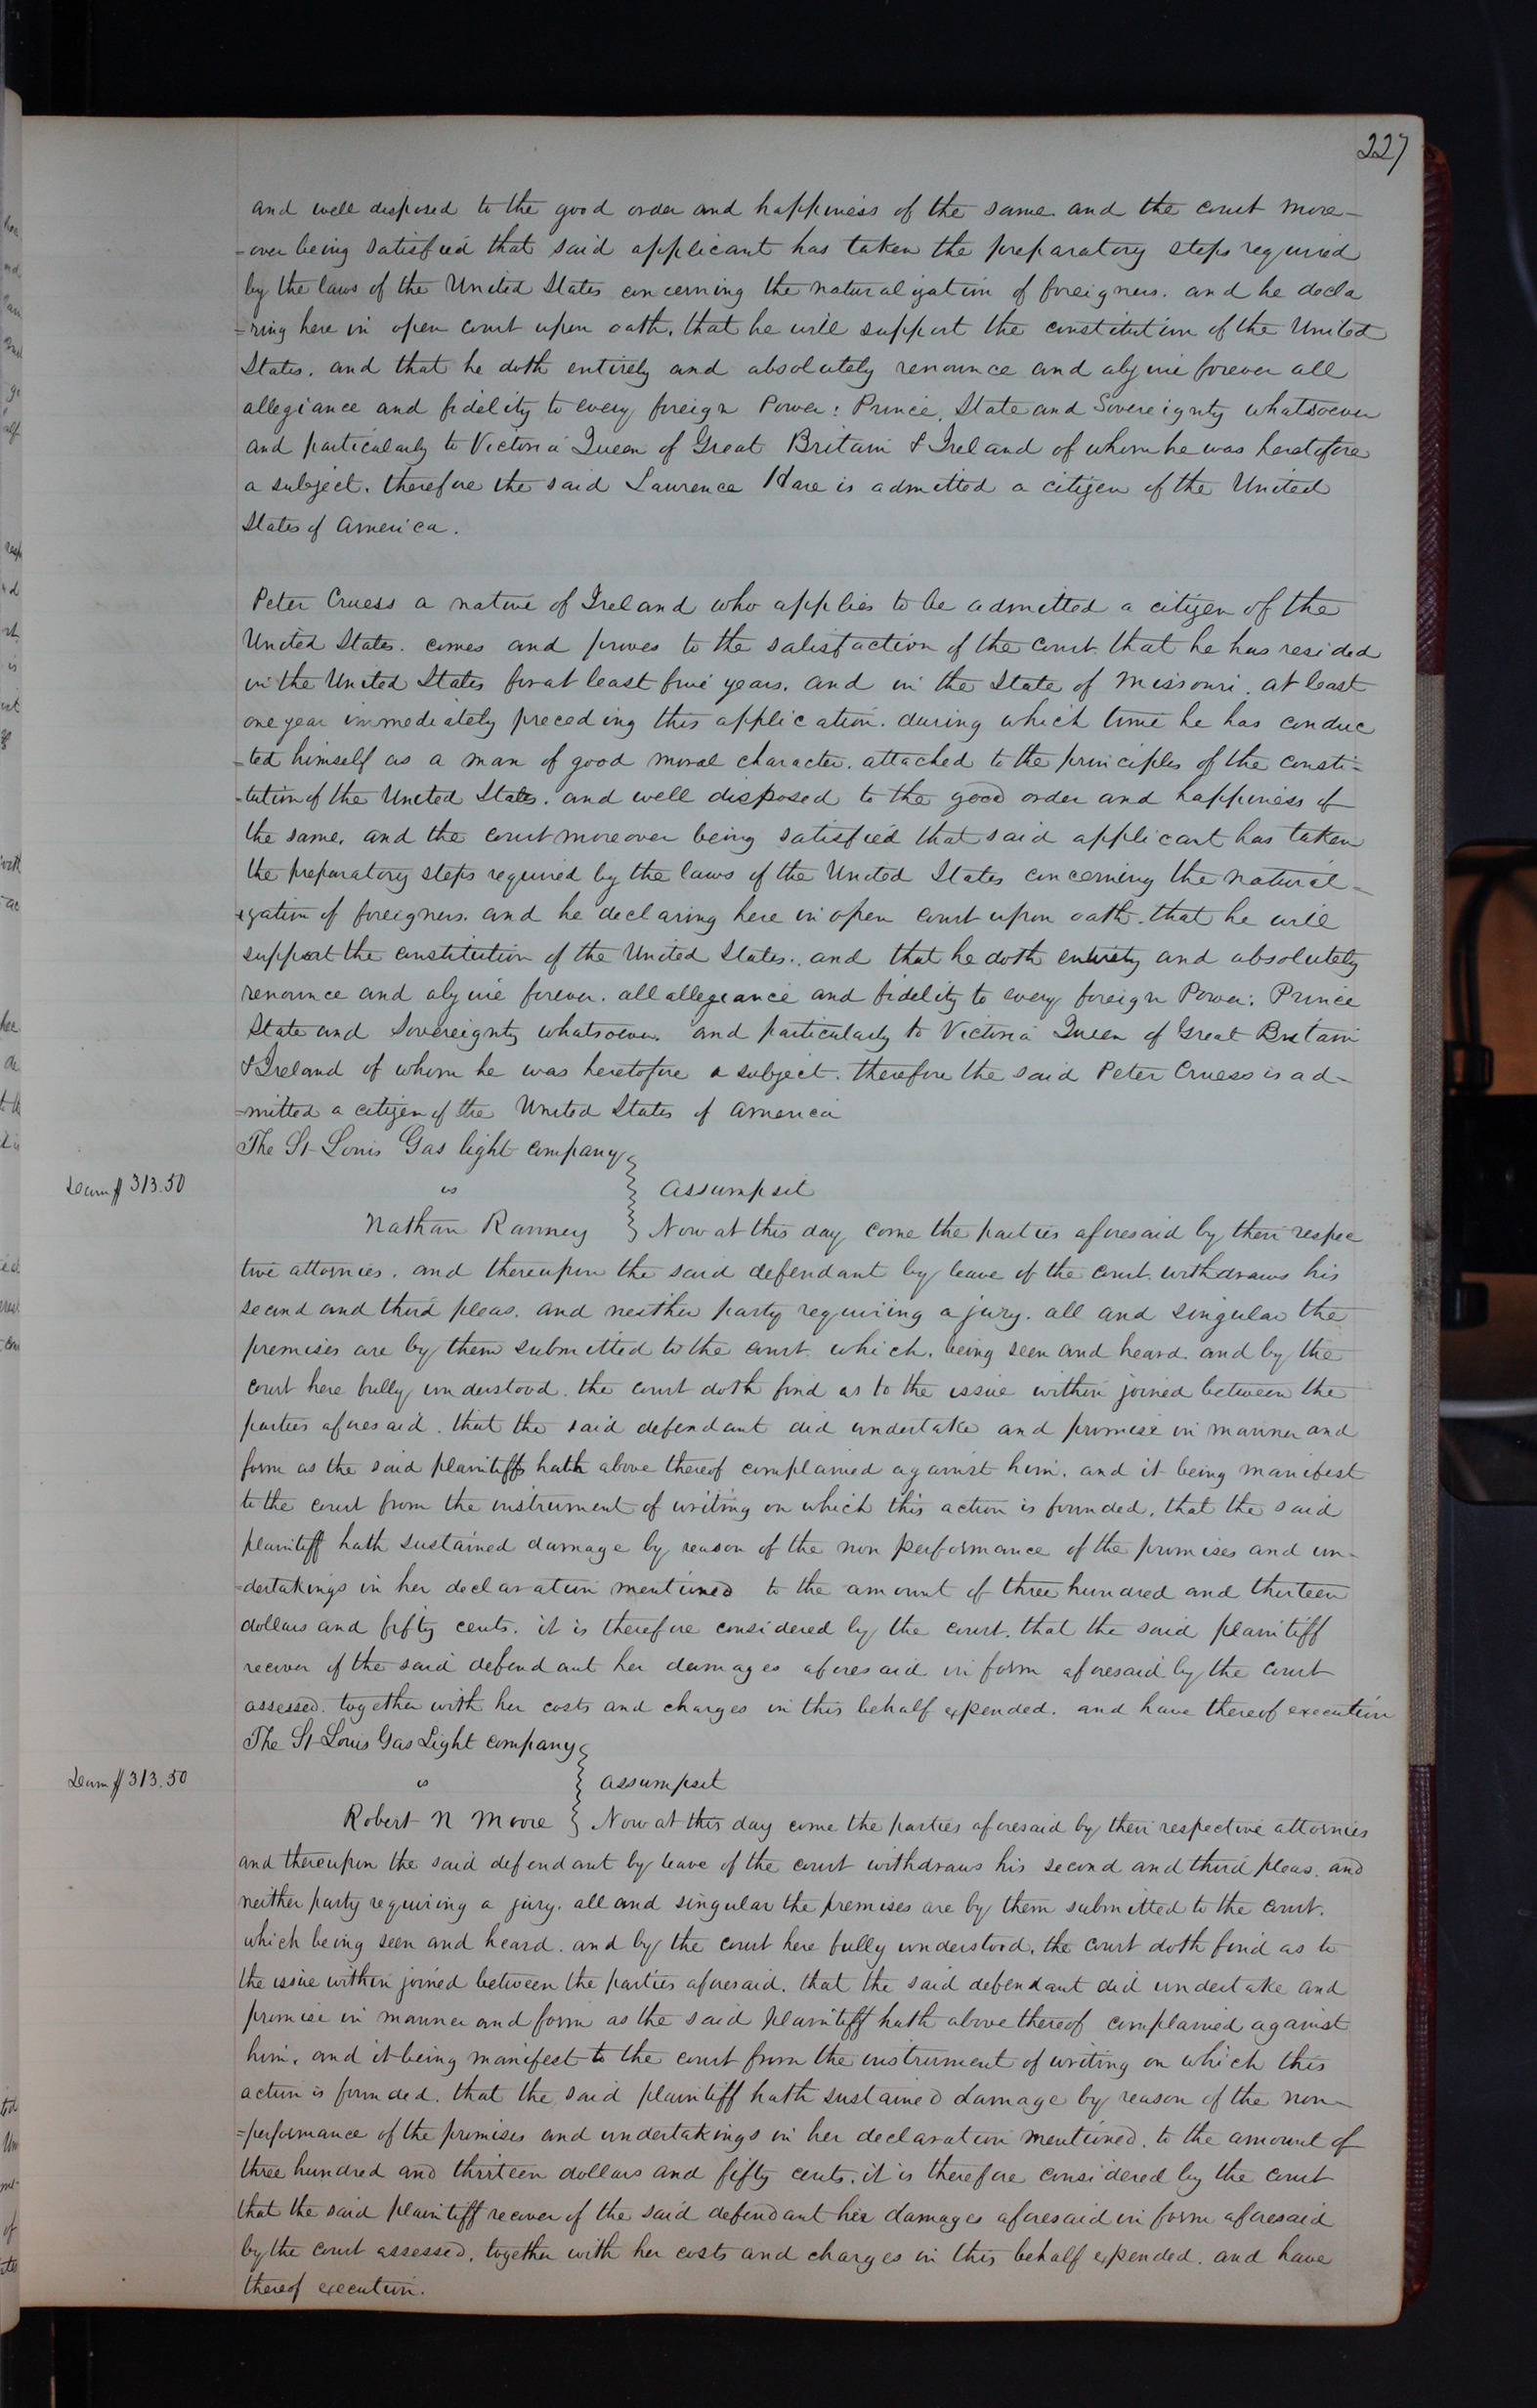 227
and well disposed to the good order and happiness of the same and the court more-
-over being satisfied that said applicant has taken the preparatory steps required
by the laws of the United States concerning the naturalization of foreigners. and he decla
=ring here in open court upon oath, that he will support the constitution of the United
States. and that he doth entirely and absolutely renounce and abjure forever all
allegiance and fidelity to every foreign Power: Prince, State and Sovereignty whatsoever
and particularly to Victoria Queen of Great Britain & Ireland of whom he was heretofore
a subject. therefore the said Laurence Hare is admitted a citizen of the United
States of America.
Peter Cruess a native of Ireland who applies to be admitted a citizen of the
United States. comes and proves to the satisfaction of the court that he has resided
in the United States for at least five years. and in the State of Missouri. at least
one year immediately preceding this application. during which time he has conduc
=ted himself as a man of good moral character. attached to the principles of the consti=
-tution of the United States. and well disposed to the good order and happiness of
the same. and the court moreover being satisfied that said applicant has taken
the preparatory steps required by the laws of the United States concerning the natural-
ization of foreigners. and he declaring here in open court upon oath. that he will
support the constitution of the United States. and that he doth entirely and absolutely
renounce and abjure forever. all allegiance and fidelity to every foreign Power: Prince
State and Sovereignty whatsoever. and particularly to Victoria Queen of Great Britain
& Ireland of whom he was heretofore a subject. therefore the said Peter Cruess is ad-
-mitted a citizen of the United States of America
The St Louis Gas light company
Dam $ 313.50
vs
Assumpsit
Nathan Ranney
Now at this day come the parties aforesaid by their respec
tive attornies. and thereupon the said defendant by leave of the court. withdraws his
second and third pleas. and neither party requiring a jury. all and singular the
premises are by them submitted to the court. which. being seen and heard. and by the
court here fully understood. the court doth find as to the issue within joined between the
parties aforesaid. that the said defendant did undertake and promise in manner and
form as the said plaintiffs hath above thereof complained against him. and it being manifest
to the court from the instrument of writing on which this action is founded, that the said
plaintiff hath sustained damage by reason of the non performance of the promises and un-
=dertakings in her declaration mentioned to the amount of three hundred and thirteen
dollars and fifty cents. it is therefore considered by the court. that the said plaintiff
recover of the said defendant her damages aforesaid in form aforesaid by the court
assessed. together with her costs and charges in this behalf expended. and have thereof execution
The St Louis Gas Light company
Dam $ 313.50
vs
Assumpsit
Robert N Moore
Now at this day come the parties aforesaid by their respective attornies
and thereupon the said defendant by leave of the court withdraws his second and third pleas. and
neither party requiring a jury. all and singular the premises are by them submitted to the court.
which being seen and heard. and by the court here fully understood, the court doth find as to
the issue within joined between the parties aforesaid. that the said defendant did undertake and
promise in manner and form as the said Plaintiff hath above thereof complained against
him. and it being manifest to the court from the instrument of writing on which this
action is founded. that the said plaintiff hath sustained damage by reason of the non-
=performance of the promises and undertakings in her declaration mentioned. to the amount of
three hundred and thirteen dollars and fifty cents. it is therefore considered by the court
that the said plaintiff recover of the said defendant her damages aforesaid in form aforesaid
by the court assessed, together with her costs and charges in this behalf expended. and have
thereof execution.